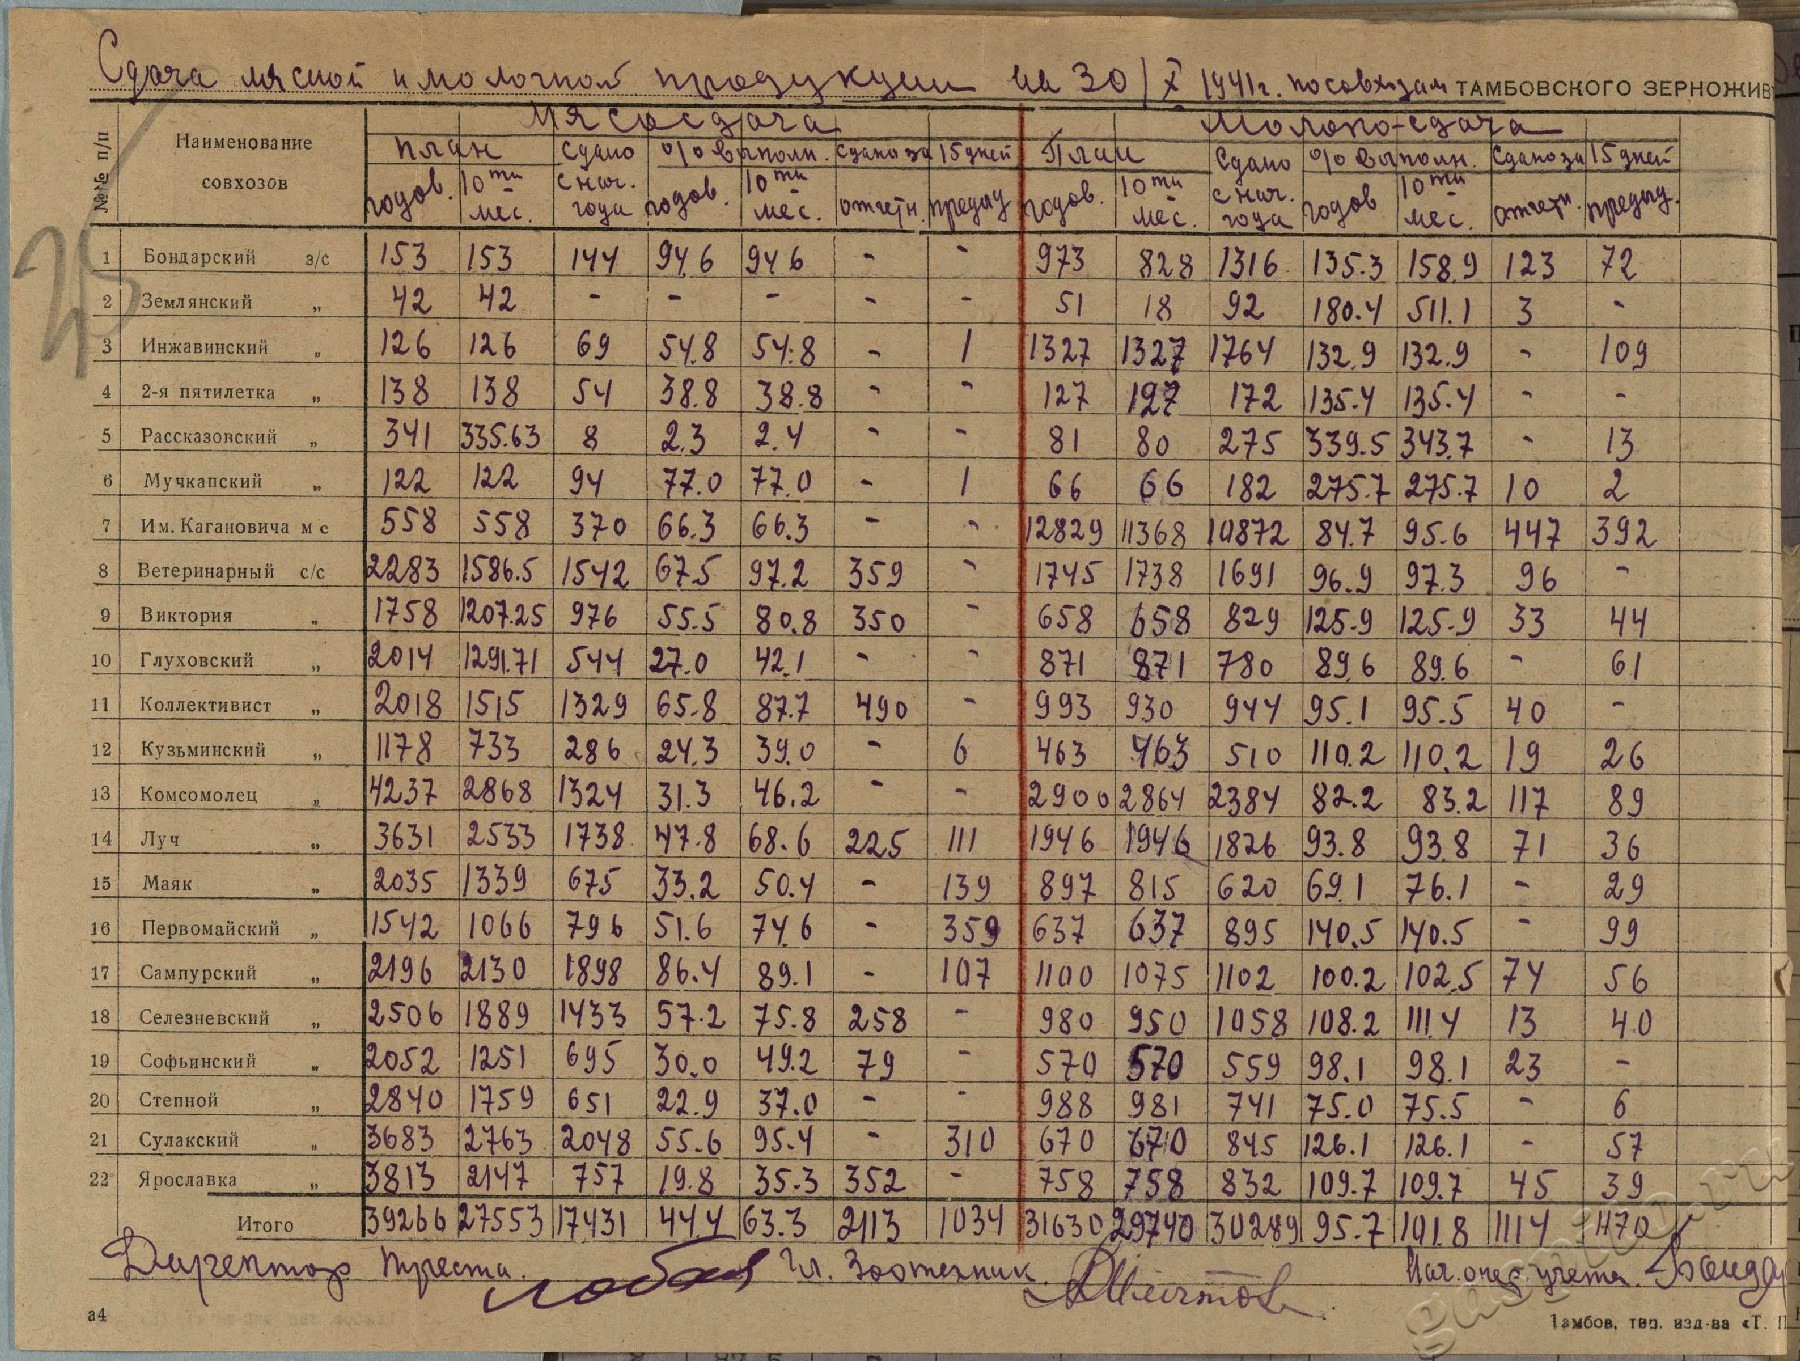 Сдача мясной и молочной продукции на 30/X 1941г. по совхозам ТАМБОВСКОГО ЗЕРНОЖИВ
№№ п/п Наименование совхозов Мясосдача Молоко-сдача
план Сдано с нач. года % выполн. Сдано за 15 дней План Сдано с нач. года % выполн. Сдано за 15 дней
годов. 10ти мес. годов. 10ти мес. отчетн. предыд годов. 10ти мес. годов 10ти мес. отчетн. предыд.
1 Бондарский з/с 153 153 144 94.6 94.6 - - 973 828 1316 135.3 158.9 123 72
2 Землянский „ 42 42 - - - - - 51 18 92 180.4 511.1 3 -
3 Инжавинский „ 126 126 69 54.8 54.8 - 1 1327 1327 1764 132.9 132.9 - 109
4 2-я пятилетка „ 138 138 54 38.8 38.8 - - 127 127 172 135.4 135.4 - -
5 Рассказовский „ 341 335.63 8 2.3 2.4 - - 81 80 275 339.5 343.7 - 13
6 Мучкапский „ 122 122 94 77.0 77.0 - 1 66 66 182 275.7 275.7 10 2
7 Им. Кагановича м с 558 558 370 66.3 66.3 - - 12829 11368 10872 84.7 95.6 447 392
8 Ветеринарный с/с 2283 1586.5 1542 67.5 97.2 359 - 1745 1738 1691 96.9 97.3 96 -
9 Виктория „ 1758 1207.25 976 55.5 80.8 350 - 658 658 829 125.9 125.9 33 44
10 Глуховский „ 2014 1291.71 544 27.0 42.1 - - 871 871 780 89.6 89.6 - 61
11 Коллективист „ 2018 1515 1329 65.8 87.7 490 - 993 930 944 95.1 95.5 40 -
12 Кузьминский „ 1178 733 286 24.3 39.0 - 6 463 463 510 110.2 110.2 19 26
13 Комсомолец „ 4237 2868 1324 31.3 46.2 - - 2900 2864 2384 82.2 83.2 117 89
14 Луч „ 3631 2533 1738 47.8 68.6 225 111 1946 1946 1826 93.8 93.8 71 36
15 Маяк „ 2035 1339 675 33.2 50.4 - 139 897 815 620 69.1 76.1 - 29
16 Первомайский „ 1542 1066 796 51.6 74.6 - 359 637 637 895 140.5 140.5 - 99
17 Сампурский „ 2196 2130 1898 86.4 89.1 - 107 1100 1075 1102 100.2 102.5 74 56
18 Селезневский „ 2506 1889 1433 57.2 75.8 258 - 980 950 1058 108.2 111.4 13 40
19 Софьинский „ 2052 1251 695 30.0 49.2 79 - 570 570 559 98.1 98.1 23 -
20 Степной „ 2840 1759 651 22.9 37.0 - - 988 981 741 75.0 75.5 - 6
21 Сулакский „ 3683 2763 2048 55.6 95.4 - 310 670 670 845 126.1 126.1 - 57
22 Ярославка „ 3813 2147 757 19.8 35.3 352 - 758 758 832 109.7 109.7 45 39
Итого 39266 27553 17431 44.4 63.3 2113 1034 31630 29740 30289 95.7 101.8 1114 1170
Директор треста. Гл. Зоотехник. Нач. опер. учета.
а4 Тамбов, тип. изд-ва «Т. П
25
gaspito.ru